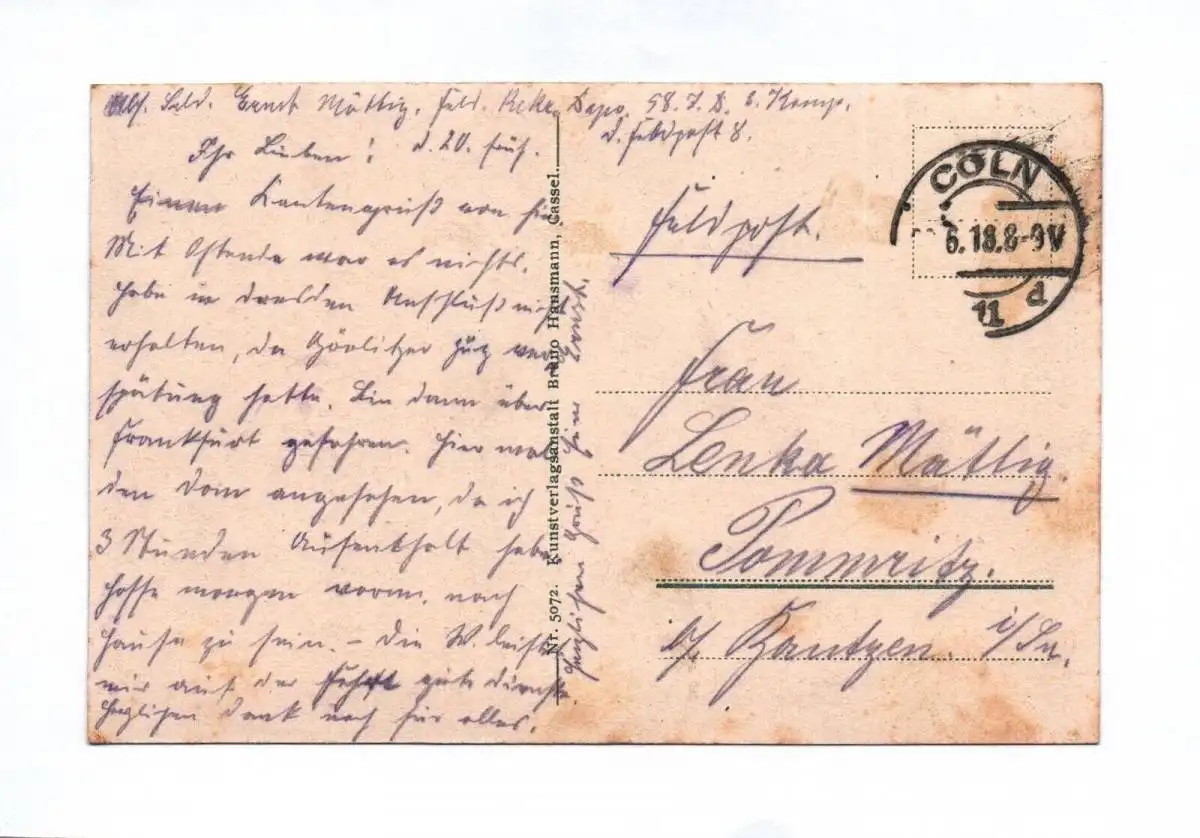 Abs. Sold. Ernst Mättig, Feld. Rekr. Depo. 58. J. D. 2. Komp.
d. Feldpost 8.
Ihr Lieben! d. 20. früh.
Einen Kartengruß von hier
Mit Ostende war es nichts.
Habe in Dresden Anschluß nicht
erhalten, da Görlitzer Zug ver
spätung hatte. Bin dann über
Frankfurt gefahren. Hier mal
den Dom angesehen, da ich
3 Stunden Aufenthalt habe
Hoffe morgen vorm. nach
Hause zu sein. – Die W. leistet
mir auf der Fahrt gute Dienste.
Herzlichen Dank noch für alles.
Herzlichen Gruß Euer Ernst.
Nr. 5072. Kunstverlagsanstalt Bruno Hansmann, Cassel.
Feldpost.
CÖLN
6.18.8-9V
11 d
Frau
Lenka Mättig
Pommritz.
b/ Bautzen. i/Sa.